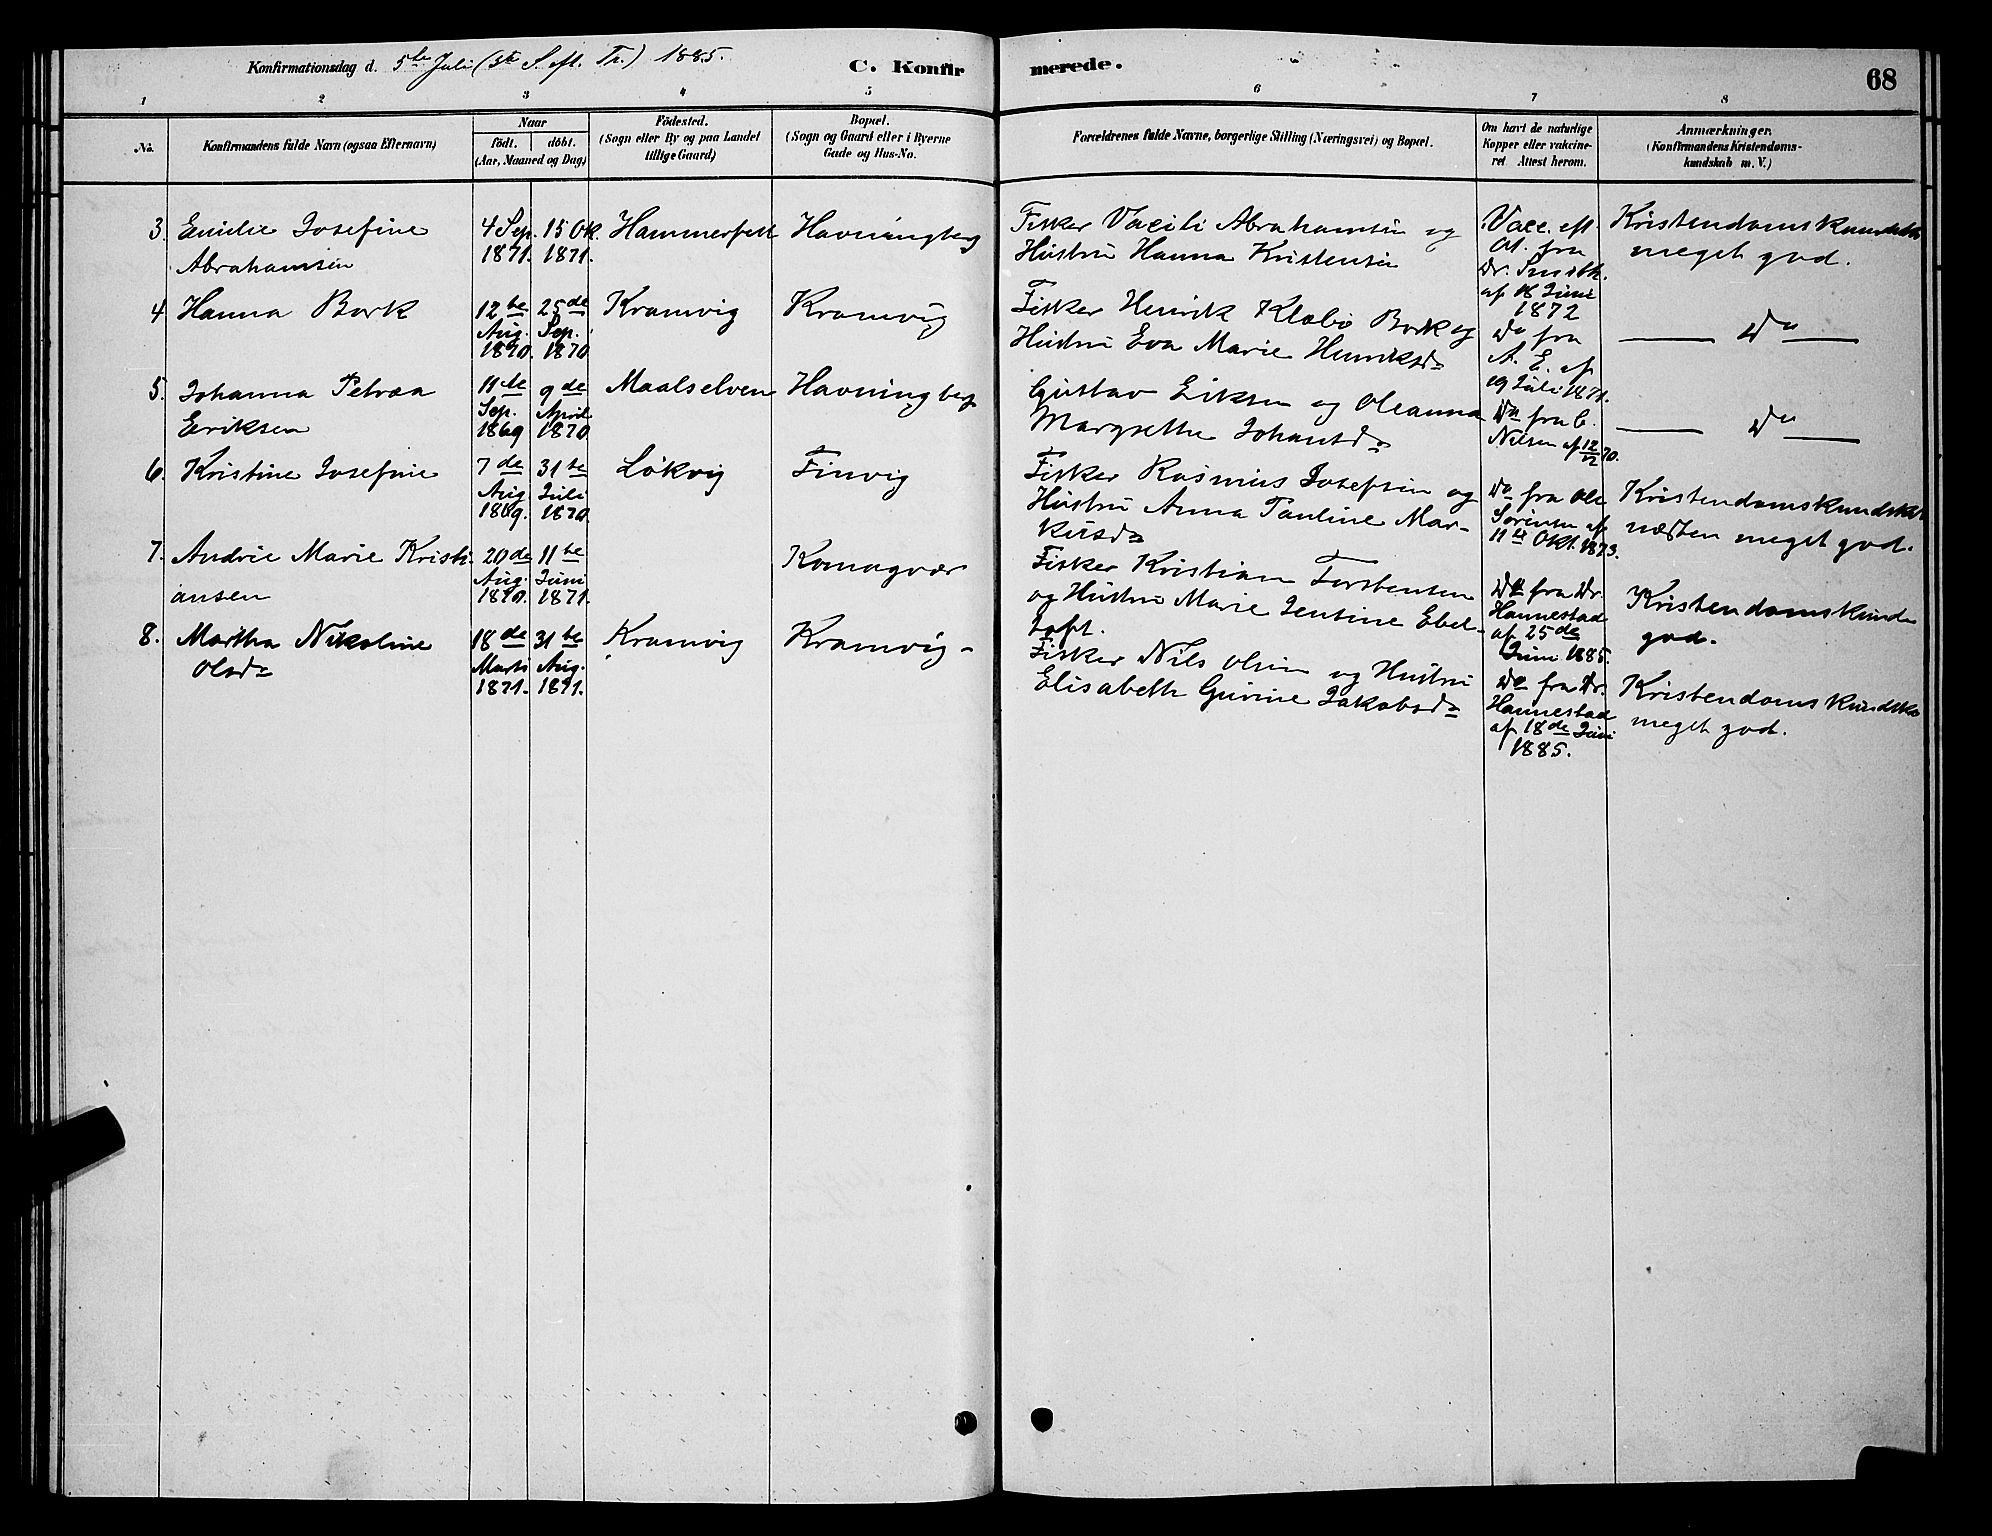 Konfirmationsdag d. 5te Juli (5te S. eft. Tr.) 1885.
C. Konfir merede.
68
1 2 3 4 5 6 7 8
No.
Konfirmandens fulde Navn (ogsaa Efternavn)
Naar
födt. döbt.
(Aar, Maaned og Dag)
Födested.
(Sogn eller By og paa Landet
tillige Gaard)
Bopæl.
(Sogn og Gaard eller i Byerne
Gade og Hus-No.
Forældrenes fulde Navne, borgerlige Stilling (Næringsvei) og Bopæl.
Om havt de naturlige
Kopper eller vakcine-
ret Attest herom.
Anmærkninger.
(Konfirmandens Kristendoms-
kundskab m. V.)
3. Emilie Josefine
Abrahamsen
4 Sep.
1871.
15 Ok.
1871.
Hammerfest
Havningberg
Fisker Vacili Abrahamsen og
Hustru Hanna Kristensen
Vacc. eft.
At. fra
Dr. Smith.
af 18 Juni
1872
Kristendomskundskab
meget god.
4 Hanna Bork
12te
Aug.
1870.
25de
Sep.
1870
Kramvig
Kramvig
Fisker Henrik Klæbo Bork og
Hustru Eva Marie Henriksd
Do fra
A. E. af
19 Juli 1871.
Do
5. Johanna Petræa
Eriksen
11te
Sep.
1869
9de
April
1870
Maalselven
Havningberg
Gustav Eriksen og Oleanna
Margrethe Johansd
Do fra C.
Nilsen af 12/12 70.
Do
6. Kristine Josefine
7de
Aug
1869.
31te
Juli
1870.
Lökvig
Finvig
Fisker Rasmus Josefsen og
Hustru Anna Pauline Mar-
kusd
Do fra Ole
Sörensen af
11te Okt. 1873.
Kristendomskundskab
næsten meget god.
7. Andrie Marie Kristi-
ansen
20de
Aug.
1870.
11te
Juni
1871.
Komagvær
Fisker Kristian Torstensen
og Hustru Marie Jentine Ebel-
toft.
Do fra Dr.
Hannestad
af 25de
Juni 1885.
Kristendomskunds
god.
8. Martha Nikoline
Olsd
18de
Marts
1871.
31te
Aug.
1871.
Kramvig
Kramvig
Fisker Nils Olsen og Hustru
Elisabeth Gurine Jakobsd
Do fra Dr.
Hannestad
af 18de Juni
1885.
Kristendomskundsk
meget god.